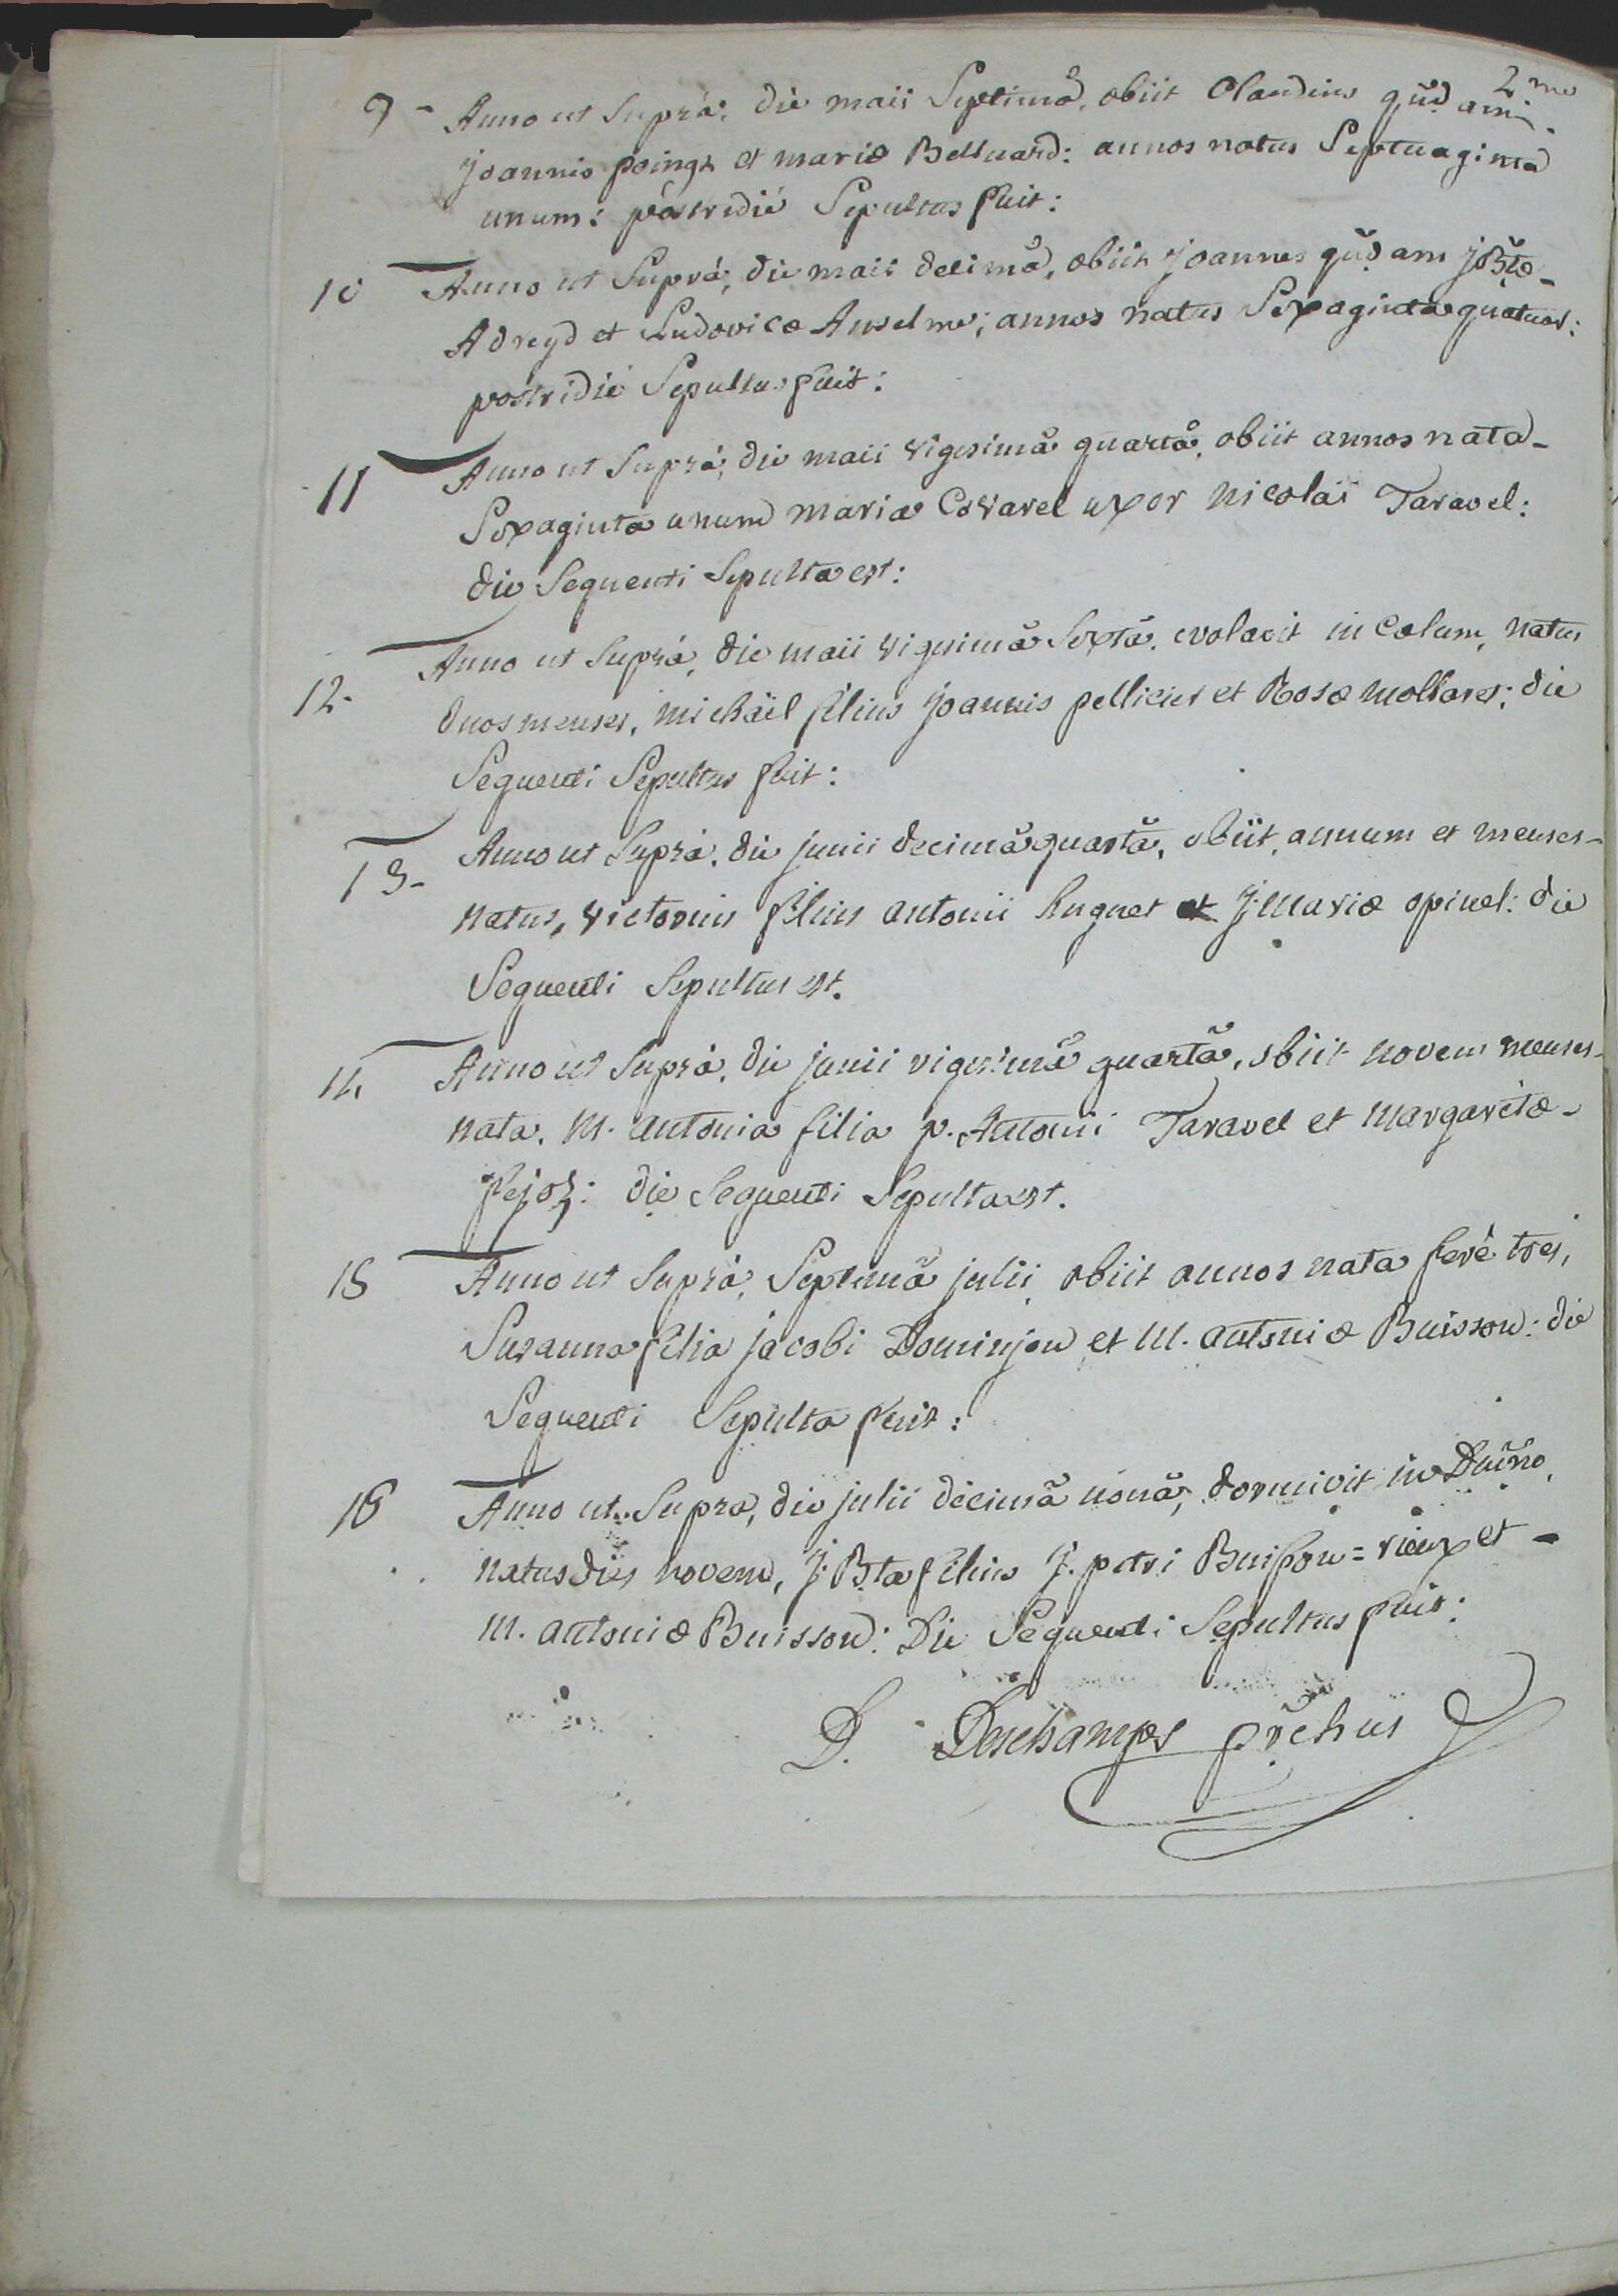 2me
9 - Anno ut Suprà; die maii Septimâ, obiit Claudius qūd am
joannis poingt et mariæ Belluard: annos natus Septuaginta
unum: postridiè Sepultus fuit:
10 Anno ut Suprà, die maii decimâ, obiit joannes qūd am j Btæ -
Adreyd et Ludovicæ Anselme; annos natus Sexaginta quatuor:
postridiè Sepultus fuit:
11 Anno ut Suprà, die maii vigesimâ quartâ, obiit annos nata -
Sexaginta unum maria Covarel uxor nicolaï Taravel:
die Sequenti Sepulta est:
12- Anno ut Suprà, die maii vigesimâ Sextâ, evolavit in Cœlum, natus
duos menses, michäel filius joannis pellicier et Rosæ mollaret; die
Sequenti Sepultus fuit:
13- Anno ut Suprà, die junii decimâ quartâ, obiit, annum et menses -
natus, victorius filius antonii huguet et j. mariæ opinel: die
Sequenti Sepultus est.
14 Anno ut Suprà, die junii vigesimâ quartâ, obiit novem menses -
nata, M. antonia filia p. Antonii Taravel et margaritæ -
fejoz: die Sequenti Sepulta est.
15 Anno ut Suprà, Septimâ julii obiit annos nata ferè tres,
Susanna filia jacobi Dominjon et M. antoniæ Buisson: die
Sequenti Sepulta fuit:
16 Anno ut Supra, die julii decimâ nonâ, dormivit in Dnĩno,
natus dies novem, j. Bta filius j. petri Buisson = vieux et -
M. antoniæ Buisson: Die Sequenti Sepultus fuit:
D. Deschamps prc̃hus